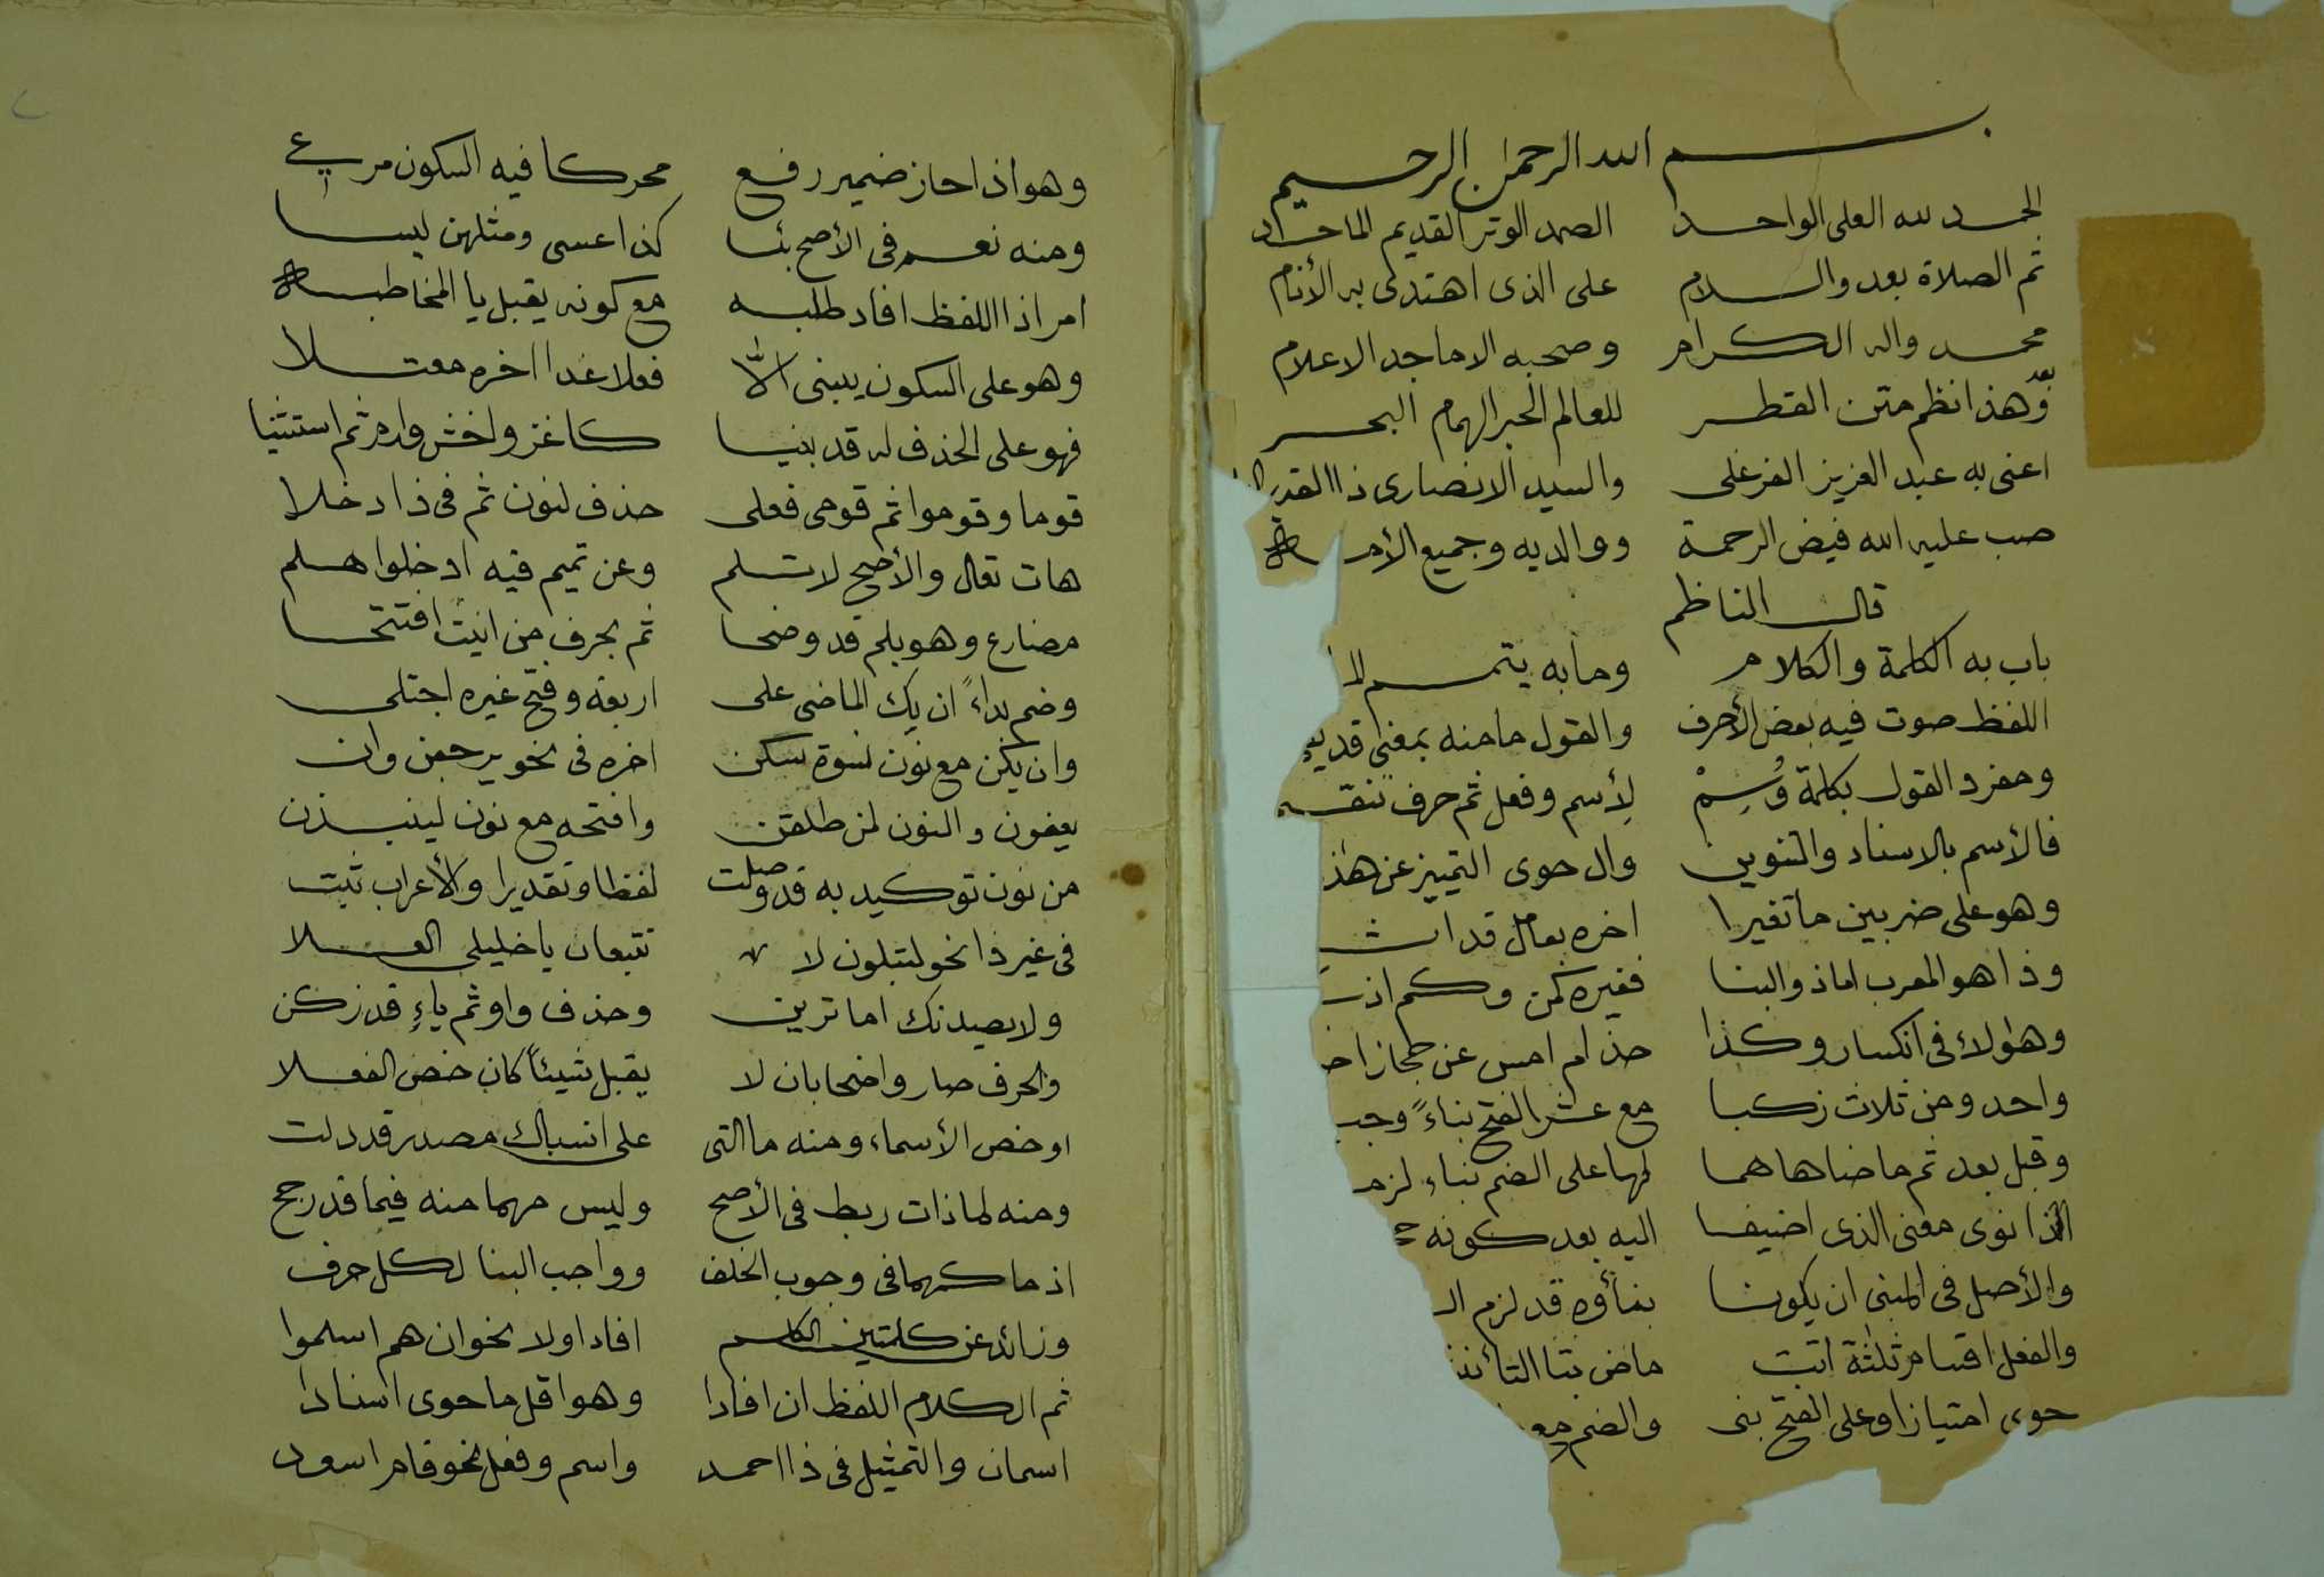 بسم الله الرحمن الرحيم
الحمد لله العلى الواحد الصمد الوتر القديم الماجد
ثم الصلاة بعد والسلام على الذى اهتدى به الأنام
محمد واله الكرام وصحبه الاماجد الاعلام
وبعد هذا نظم متن القطر للعالم الحبر الهمام البحر
اعنى به عبد العزيز الفرغلى والسيد الانصارى ذا القدر
صب عليه الله فيض الرحمة ووالديه وجميع الأمة
قال الناظم
باب به الكلمة والكلام وما به يتم
اللفظ صوت فيه بعض الأحرف والقول ما منه بمعنى قد
ومفرد القول بكلمة وُسِمْ لأسم وفعل ثم حرف تنقسم
فالأسم بالاسناد والتنوين وال حوى التمييز عن
وهو على ضربين ما تغيرا اخره بعامل قد
وذا هو المعرب اما ذو البنا فغيره كمن وكم
وهؤلاء فى انكسار وكذا حذام امس عن حجاز
واحد ومن ثلاث ركبا مع عشر الفتح بناءً وجب
وقبل بعد ثم ما ضاهاهما لها على الضم بناء لزم
اذا نوى معنى الذى اضيفا اليه بعد كونه
والأصل فى المبنى ان يكونا بناؤه قد لزم
والفعل اقسام ثلثة اتت ماض بتا
حوى امتيازا وعلى الفتح بنى والضم مع
وهو اذا حاز ضمير رفع محركا فيه السكون مرعي
ومنه نعم فى الأصح بئسا كذا عسى ومثلهن ليسا
امر اذا اللفظ افاد طلبه مع كونه يقبل يا المخاطبه
وهو على السكون يبنى الّا فعلا غدا اخره معتلا
فهو على الحذف له قد بنيا كاغز واخش وارم ثم استثنيا
قوما وقوموا ثم قومى فعلى حذف لنون ثم فى ذا دخلا
هات تعال والأصح لا تسلم وعن تميم فيه ادخلوا هلم
مضارع وهو بلم قد وضحا ثم بحرف من انيت افتتحا
وضم بداءً ان يك الماضى على اربعة وفتح غيره اجتلى
وان يكن مع نون نسوة سكن اخره فى نحو يرجعن وان
يعفون والنون لمن طلقن وافتحه مع نون لينبذن
من نون توكيد به قد وصلت لفظا وتقديرا والأعراب ثبت
فى غير ذا نحو لتبلون لا تتبعان يا خليلى العلا
ولا يصدنك اما ترين وحذف واو ثم ياءٍ قد زكن
والحرف صار واضحا بان لا يقبل شيئاً كان خص الفعلا
او خص الأسماء ومنه ما التى على انسباك مصدر قد دلت
ومنه لما ذات ربط فى الأصح وليس مهما منه فيما قد رجح
اذ ما كمهما فى وجوب الخلف وواجب البنا لكل حرف
وزائد عن كلمتين الكلم افاد اولا نحو ان هم اسلموا
ثم الكلام اللفظ ان افادا وهو اقل ما حوى اسنادا
اسمان والتمثيل فى ذا احمد واسم وفعل نحو قام اسعد